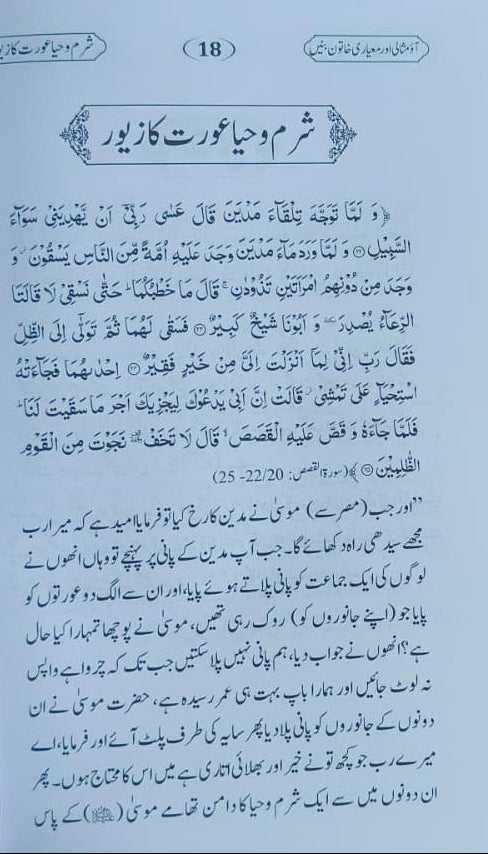 آؤ مثالی اور معیاری خاتون بنیں
18
شرم و حیا عورت کا زیور
شرم و حیا عورت کا زیور
﴿وَ لَمَّا تَوَجَّهَ تِلْقَآءَ مَدْيَنَ قَالَ عَسٰى رَبِّيْٓ اَنْ يَّهْدِيَنِيْ سَوَآءَ
السَّبِيْلِ ۝۲۲ وَ لَمَّا وَرَدَ مَآءَ مَدْيَنَ وَجَدَ عَلَيْهِ اُمَّةً مِّنَ النَّاسِ يَسْقُوْنَ وَ
وَجَدَ مِنْ دُوْنِهِمُ امْرَاَتَيْنِ تَذُوْدٰنِ قَالَ مَا خَطْبُكُمَا حَتّٰى نَسْقِيْ لَا قَالَتَا
الرِّعَآءُ يُصْدِرَ وَ اَبُوْنَا شَيْخٌ كَبِيْرٌ ۝۲۳ فَسَقٰى لَهُمَا ثُمَّ تَوَلّٰى اِلَى الظِّلِّ
فَقَالَ رَبِّ اِنِّيْ لِمَا اَنْزَلْتَ اِلَيَّ مِنْ خَيْرٍ فَقِيْرٌ ۝۲۴ اِحْدٰىهُمَا فَجَآءَتْهُ
اسْتِحْيَآءٍ عَلَى تَمْشِيْ قَالَتْ اِنَّ اَبِيْ يَدْعُوْكَ لِيَجْزِيَكَ اَجْرَ مَا سَقَيْتَ لَنَا
فَلَمَّا جَآءَهٗ وَ قَصَّ عَلَيْهِ الْقَصَصَ قَالَ لَا تَخَفْ نَجَوْتَ مِنَ الْقَوْمِ
الظّٰلِمِيْنَ ۝۲۵﴾ (سورۃ القصص: 22/20- 25)
”اور جب (مصر سے) موسیٰ نے مدین کا رخ کیا تو فرمایا امید ہے کہ میرا رب
مجھے سیدھی راہ دکھائے گا۔ جب آپ مدین کے پانی پر پہنچے تو وہاں انھوں نے
لوگوں کی ایک جماعت کو پانی پلاتے ہوئے پایا، اور ان سے الگ دو عورتوں کو
پایا جو (اپنے جانوروں کو) روک رہی تھیں، موسیٰ نے پوچھا تمہارا کیا حال
ہے؟ انھوں نے جواب دیا، ہم پانی نہیں پلا سکتیں جب تک کہ چرواہے واپس
نہ لوٹ جائیں اور ہمارا باپ بہت ہی عمر رسیدہ ہے، حضرت موسیٰ نے ان
دونوں کے جانوروں کو پانی پلا دیا پھر سایہ کی طرف پلٹ آئے اور فرمایا، اے
میرے رب جو کچھ تو نے خیر اور بھلائی اتاری ہے میں اس کا محتاج ہوں۔ پھر
ان دونوں میں سے ایک شرم و حیا کا دامن تھامے موسیٰ (علیہ السلام) کے پاس